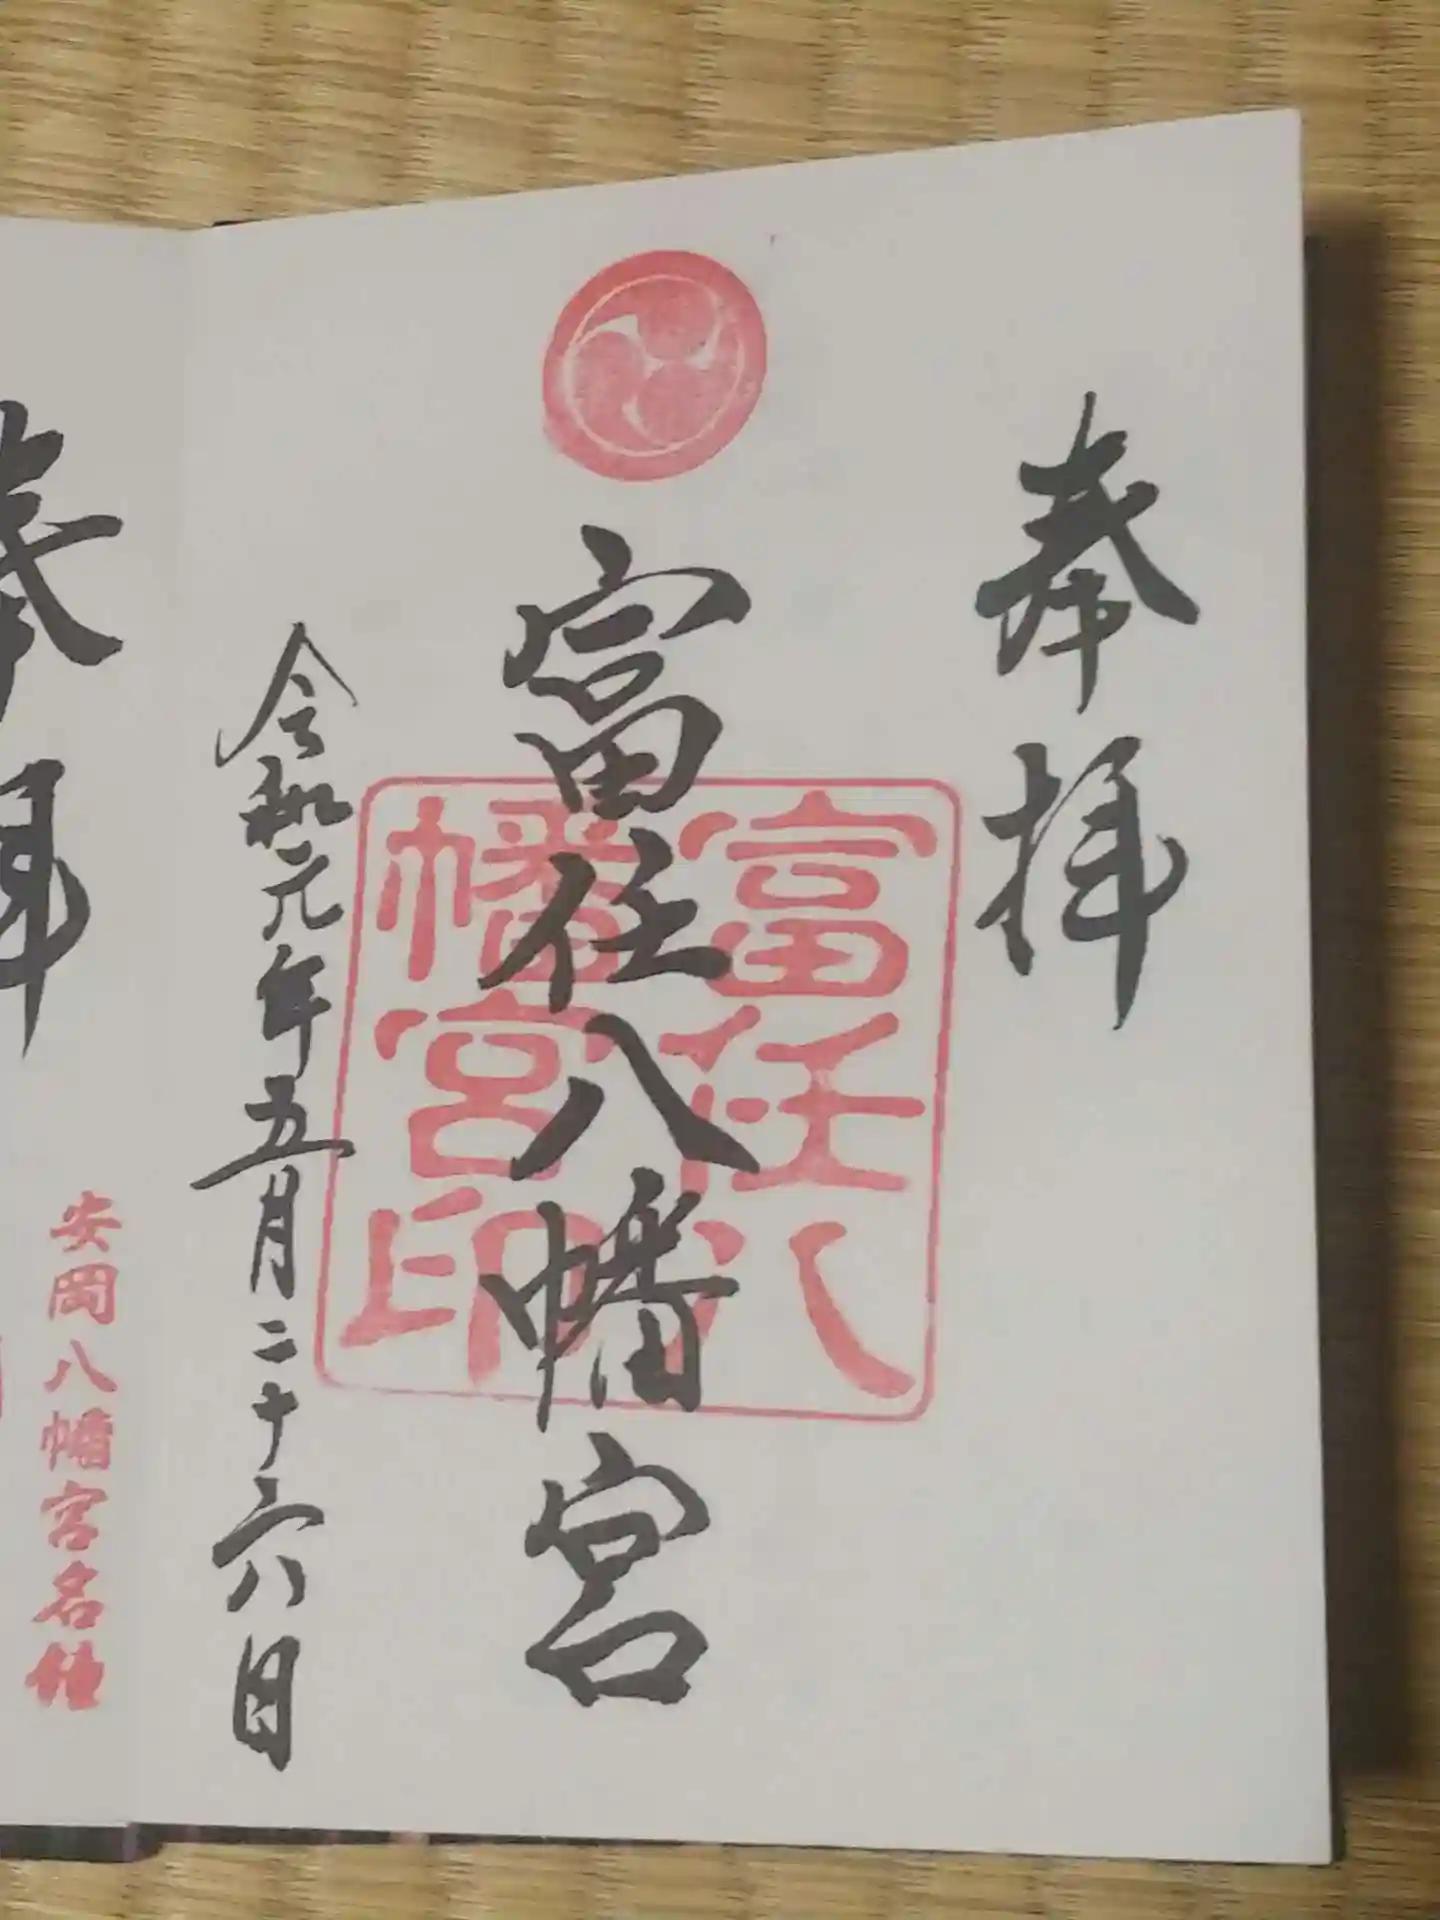 奉拝
富任八幡宮
富任八
幡宮印
令和元年五月二十六日
奉拝
安岡八幡宮名